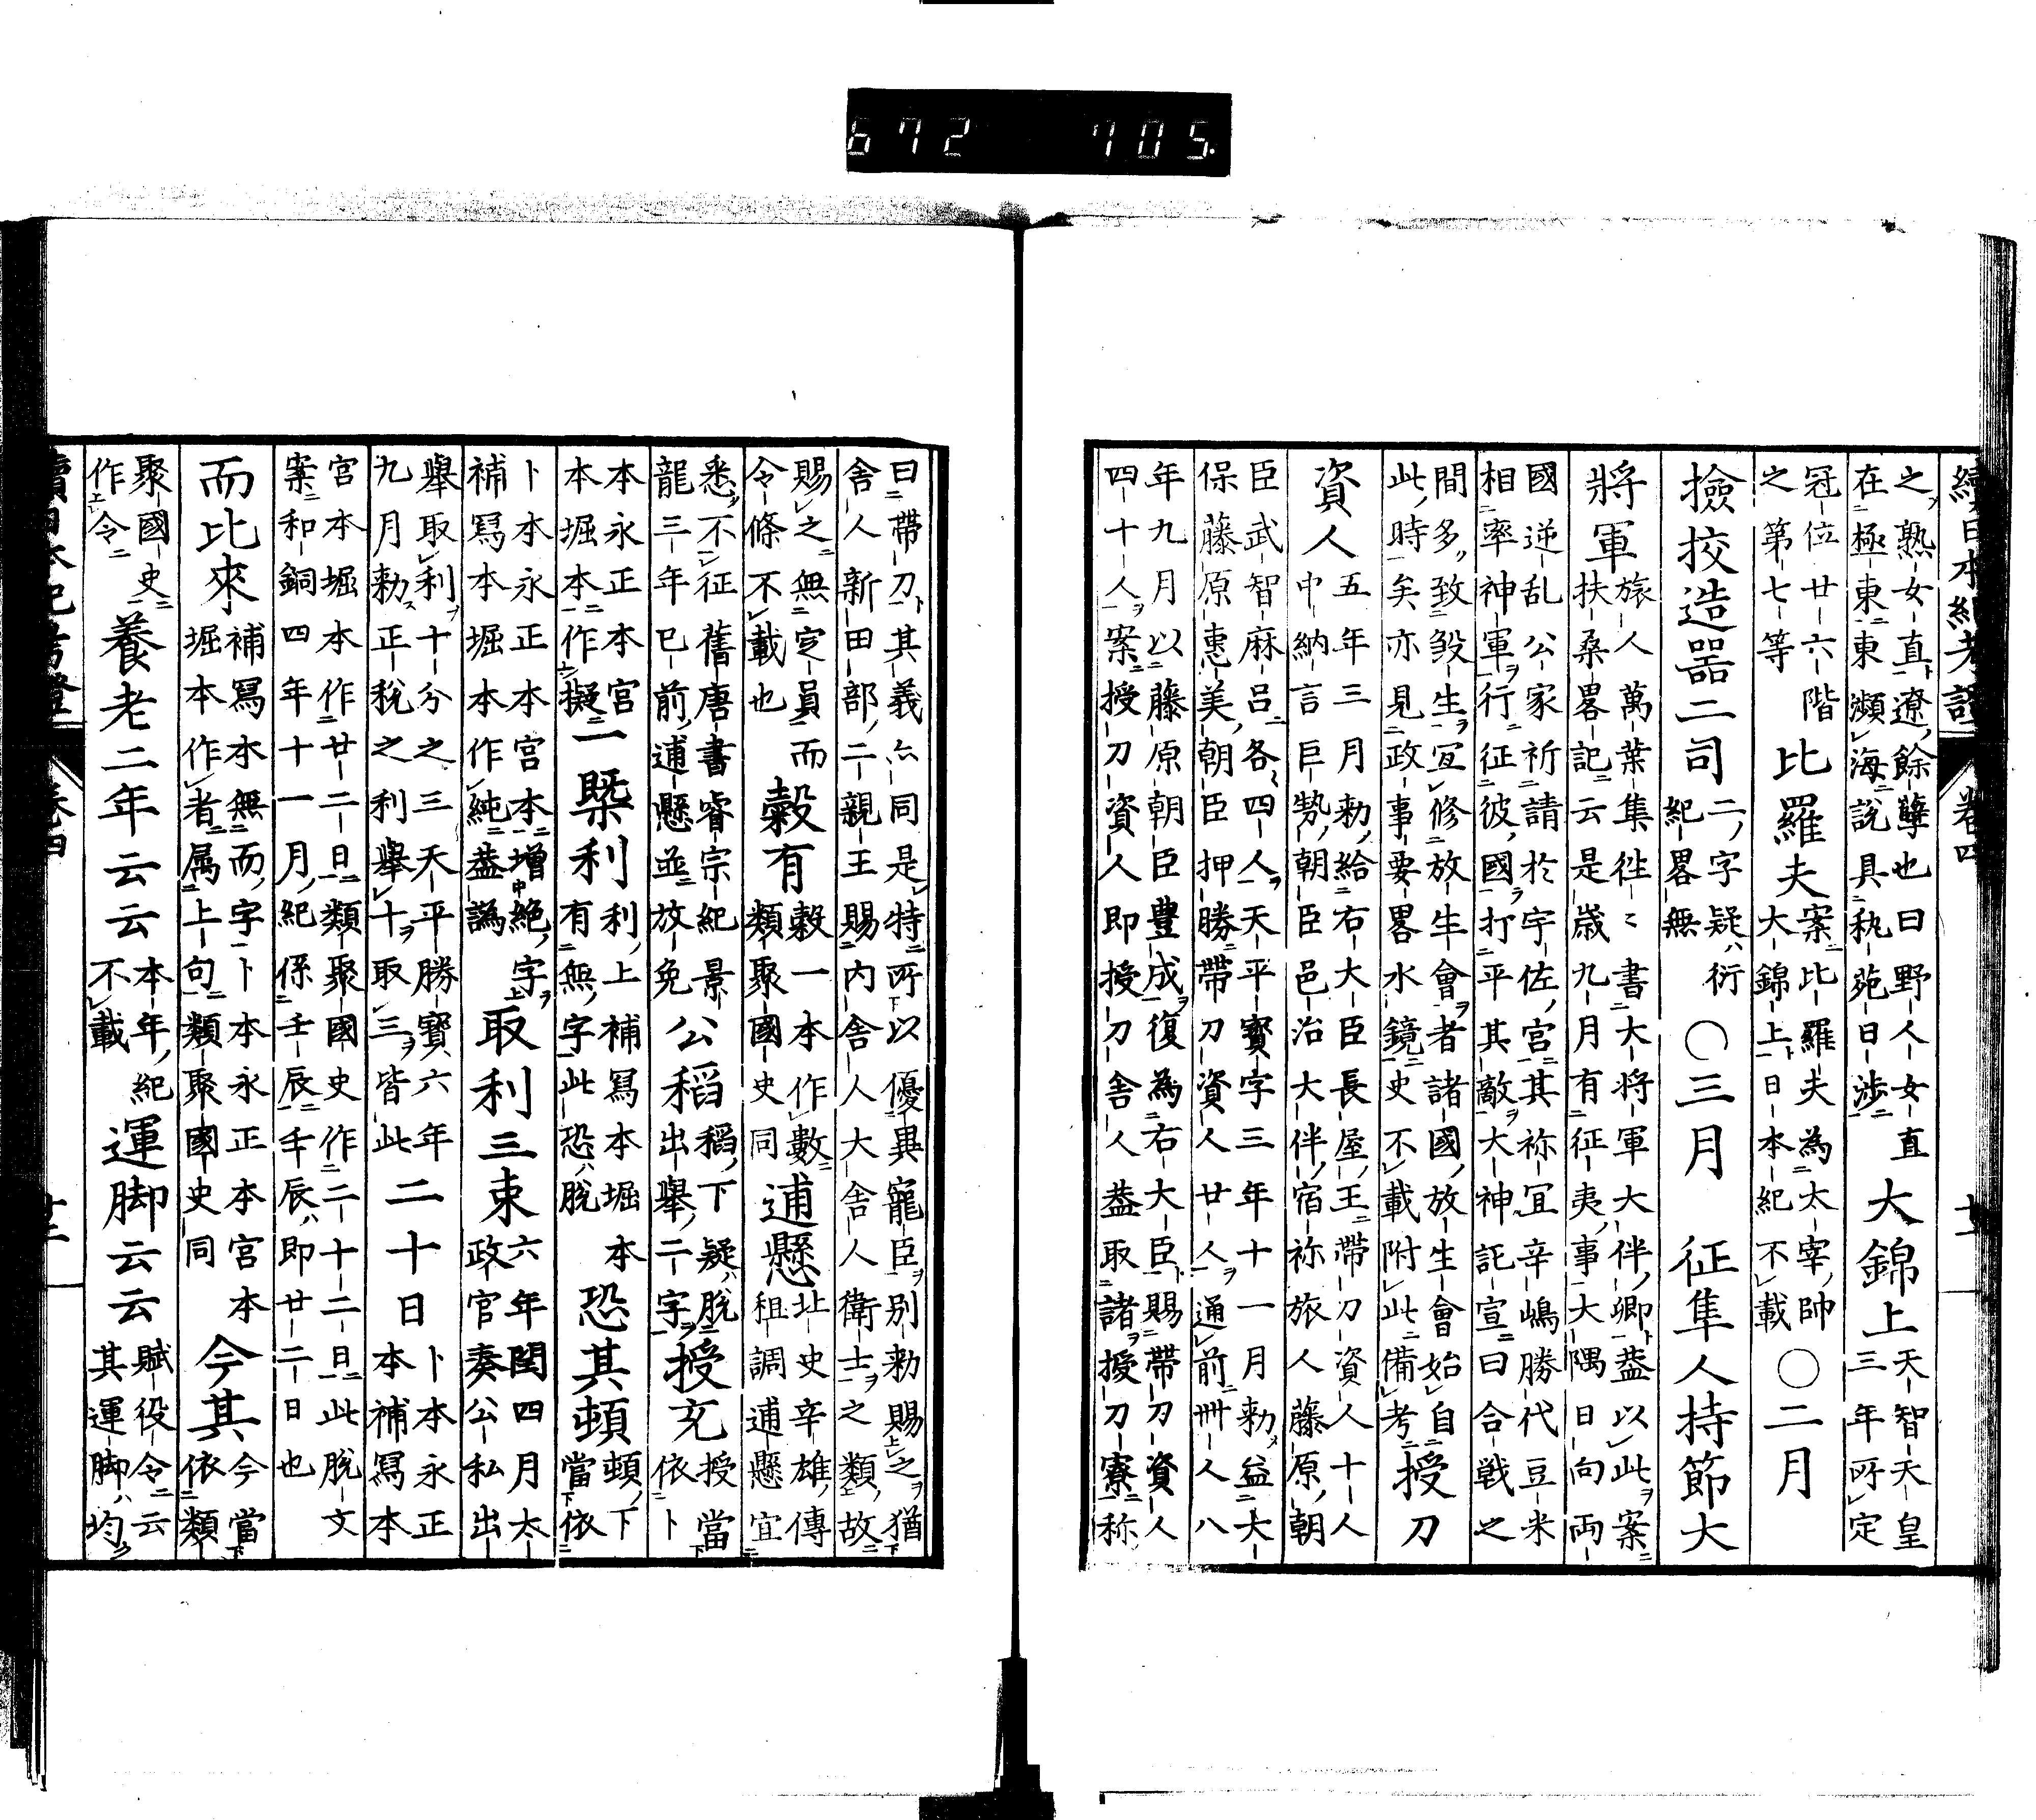 672 705.
續日本紀考證 卷四 十一
之熟女直遼餘孽也曰野人女直
在極東東瀕海說具秇苑日渉
大錦上
天智天皇
三年所定
冠位廿六階
之第七等
比羅夫
案比羅夫為太宰帥
大錦上日本紀不載
○二月
撿挍造器二司
二字疑衍
紀畧無
○三月
征隼人持節大
將軍
旅人萬葉集徃々書大将軍大伴卿葢以此案
扶桑畧記云是歳九月有征夷事大隅日向兩
國逆乱公家祈請於宇佐宮其祢宜辛嶋勝代豆米
相率神軍行征彼國打平其敵大神託宣曰合戦之
間多致殺生宜修放生會者諸國放生會始自
此時矣亦見政事要畧水鏡史不載附此備考
授刀
資人
五年三月勅給右大臣長屋王帶刀資人十人
中納言巨勢朝臣邑治大伴宿祢旅人藤原朝
臣武智麻呂各四人天平寳字三年十一月勅益大
保藤原惠美朝臣押勝帶刀資人廿人通前卌人八
年九月以藤原朝臣豊成復為右大臣賜帶刀資人
四十人案授刀資人即授刀舎人葢取諸授刀寮称
曰帶刀其義亦同是特所以優異寵臣別勅賜之猶
舎人新田部二親王賜内舎人大舎人衛士之類故
賜之無定員而
令條不載也
穀有
穀一本作數
類聚國史同
逋懸
北史辛雄傳
租調逋懸宜
悉不征舊唐書睿宗紀景
龍三年巳前逋懸並放免
公稻
稻下疑脱
出舉二字
授充
授當
依卜
本永正本宮
本堀本作擬
一槩利
利上補寫本堀本
有無字此恐脱
恐其頓
頓下
當依
卜本永正本宮本増絶字
補寫本堀本本作純葢譌
取利三束
六年閏四月太
政官奏公私出
舉取利十分之三天平勝寳六年
九月勅正稅之利舉十取三皆此
二十日
卜本永正
本補寫本
宮本堀本作廿二日類聚國史作二十二日此脱文
案和銅四年十一月紀係壬辰壬辰即廿二日也
而比來
補寫本無而字卜本永正本宮本
堀本作者属上句類聚國史同
今其
今當
依類
聚國史
作令
養老二年云云
本年紀
不載
運脚云云
賦役令云
其運脚均
續日本紀考證 卷四 十二